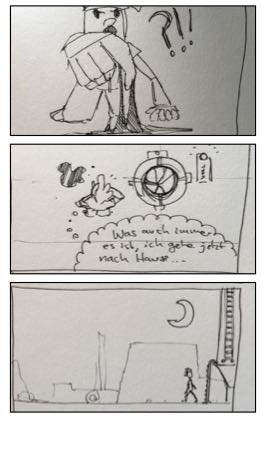 ?!
Was auch immer
es ist, ich gehe jetzt
nach Hause...